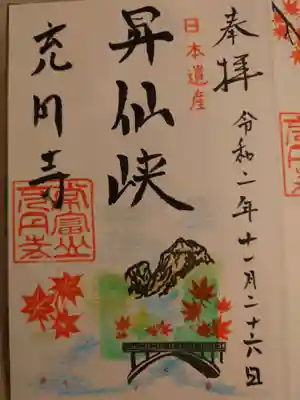 奉拝
令和二年十一月二十六日
日本遺産
昇仙峡
充円寺